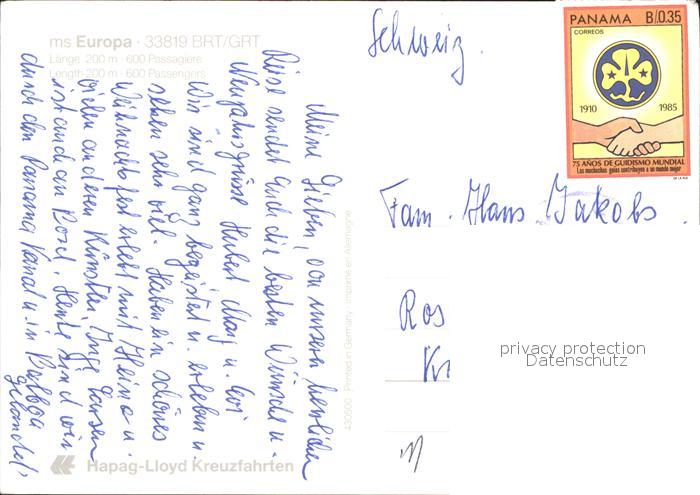 ms Europa · 33819 BRT/GRT
Länge 200 m · 600 Passagiere
Length 200 m · 600 Passengers
Meine Lieben, von unserer herrlichen
Reise sendet Euch die besten Wünsche u.
Neujahrsgrüsse Hubert
Wir sind ganz begeistert u. erleben u.
sehen sehr viel. Haben ein schönes
Weihnachtsfest erlebt mit Heino u.
vielen anderen Künstler, Inge
ist auch an Bord. Heute sind wir
durch den Panama Kanal u. in Balboa
gelandet.
Hapag-Lloyd Kreuzfahrten
430500 Printed in Germany · Imprimé en Allemagne
Schweiz.
PANAMA B/0.35
CORREOS
1910 1985
75 AÑOS DE GUIDISMO MUNDIAL
Las muchachas guías contribuyen a un mundo mejor
Fam. Hans Jakobs.
Ros
Kr
privacy protection
Datenschutz